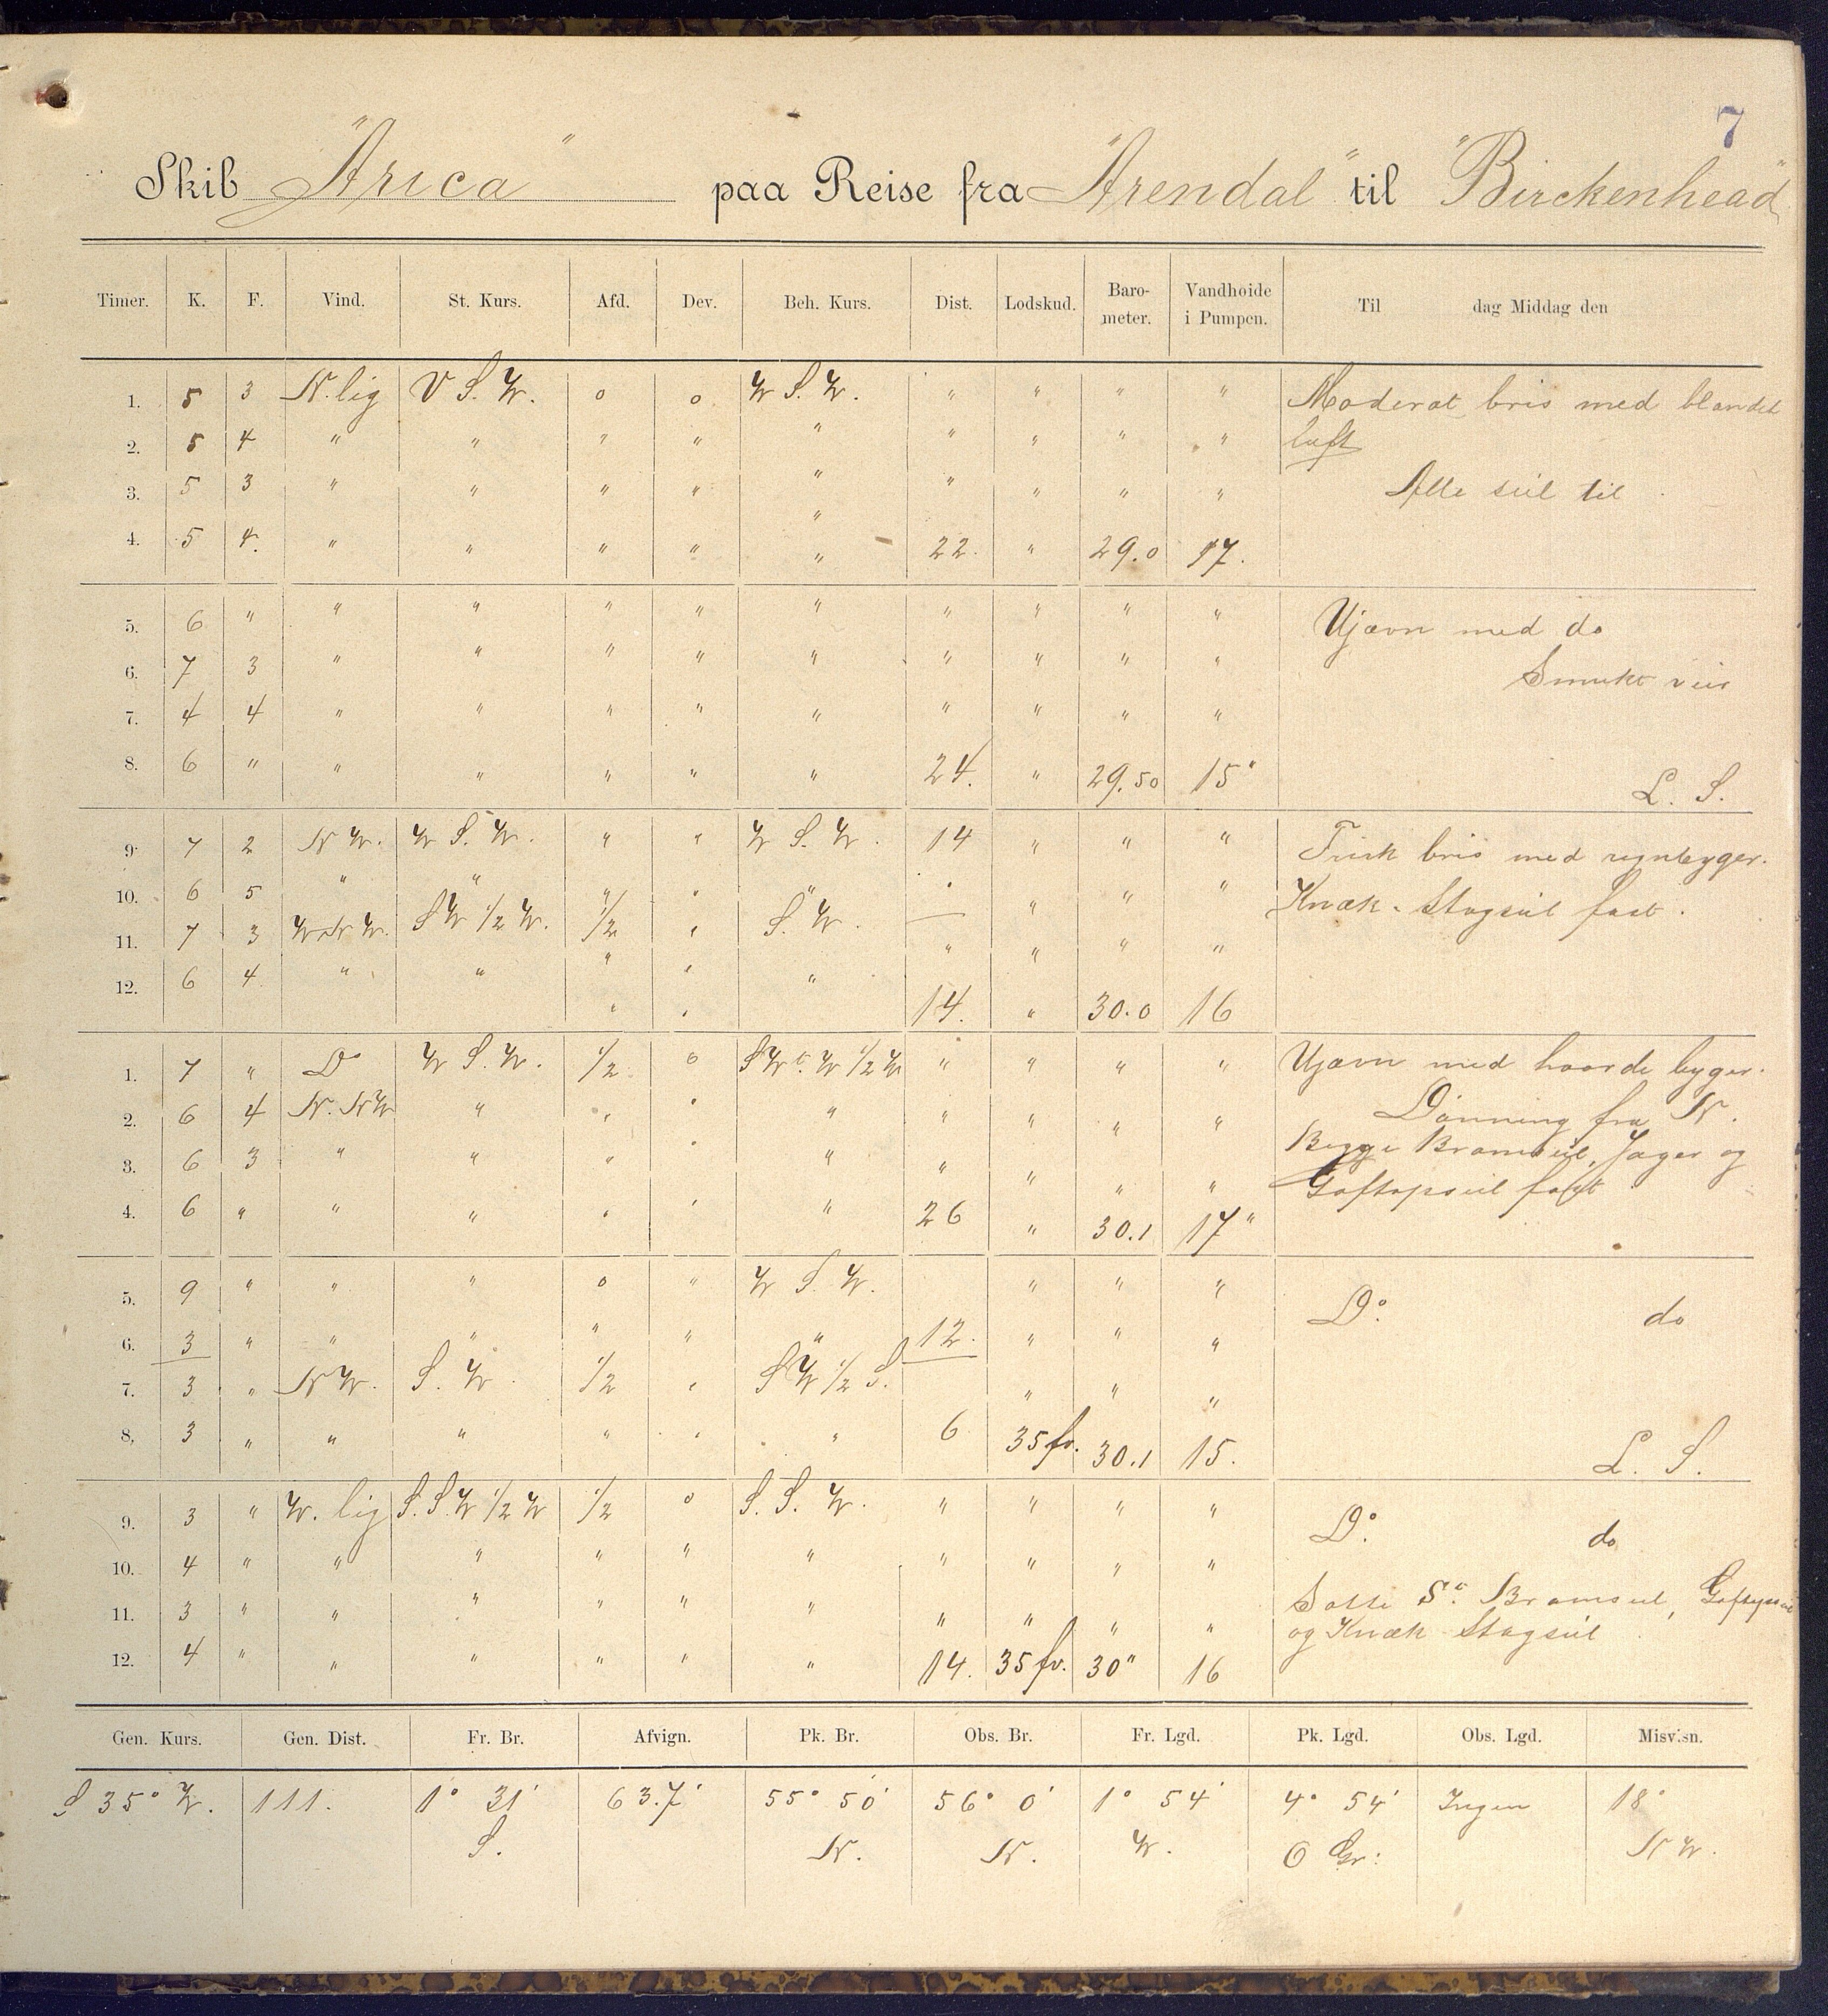 7
Skib "Arica" paa Reise fra "Arendal" til "Birckenhead"
Timer. K. F. Vind. St. Kurs. Afd. Dev. Beh. Kurs. Dist. Lodskud. Baro-meter. Vandhoide i Pumpen. Til dag Middag den
1. 5 3 N.lig V S. W. 0 0 W S. W. " " " " Moderat bris med blandet
2. 5 4 " " " " " " " " " luft
3. 5 3 " " " " " " " " " Alle seil til
4. 5 4. " " " " " 22. " 29.0 17.
5. 6 " " " " " " " " " " Ujævn med do
6. 7 3 " " " " " " " " " Smukt veir
7. 4 4 " " " " " " " " "
8. 6 " " " " " " 24. " 29.50 15" L. S.
9. 7 2 N W. W S. W. " " W S. W. 14 " " " Frisk bris med regnbyger.
10. 6 5 " " " " " " " " " Knæk-Stagseil fast.
11. 7 3 W.N W. S W 1/2 W. 1/2 " S. W. " " " "
12. 6 4 " " " " " 14. " 30.0 16
1. 7 " Do W S. W. 1/2 0 S W t. W 1/2 W " " " " Ujævn med haarde byger.
2. 6 4 N. N W " " " " " " " " Dønning fra N.
3. 6 3 " " " " " " " " " Begge Bramseil, Jager og
4. 6 " " " " " " 26 " 30.1 17" Gaftopseil fast
5. 9 " " " 0 " W S. W. " " "
6. 3 " " " " " " 12. " " " Do. do
7. 3 " N W. S. W. 1/2 " S W 1/2 S. " " "
8. 3 " " " " " " 6 35 fv. 30.1 15. L. S.
9. 3 " W. lig S. S W 1/2 W 1/2 0 S. S. W. " " " "
10. 4 " " " " " " " " " " Do. do
11. 3 " " " " " " " " " " Satte St. Bramseil,
12. 4 " " " " " " 14. 35 fv. 30" 16 og Knæk-Stagseil
Gen. Kurs. Gen. Dist. Fr. Br. Afvign. Pk. Br. Obs. Br. Fr. Lgd. Pk. Lgd. Obs. Lgd. Misvisn.
S 35° W. 111. 1° 31' 63.7' 55° 50' 56° 0' 1° 54' 4° 54' Ingen 18°
S. N. N. W. O Gr: N W.